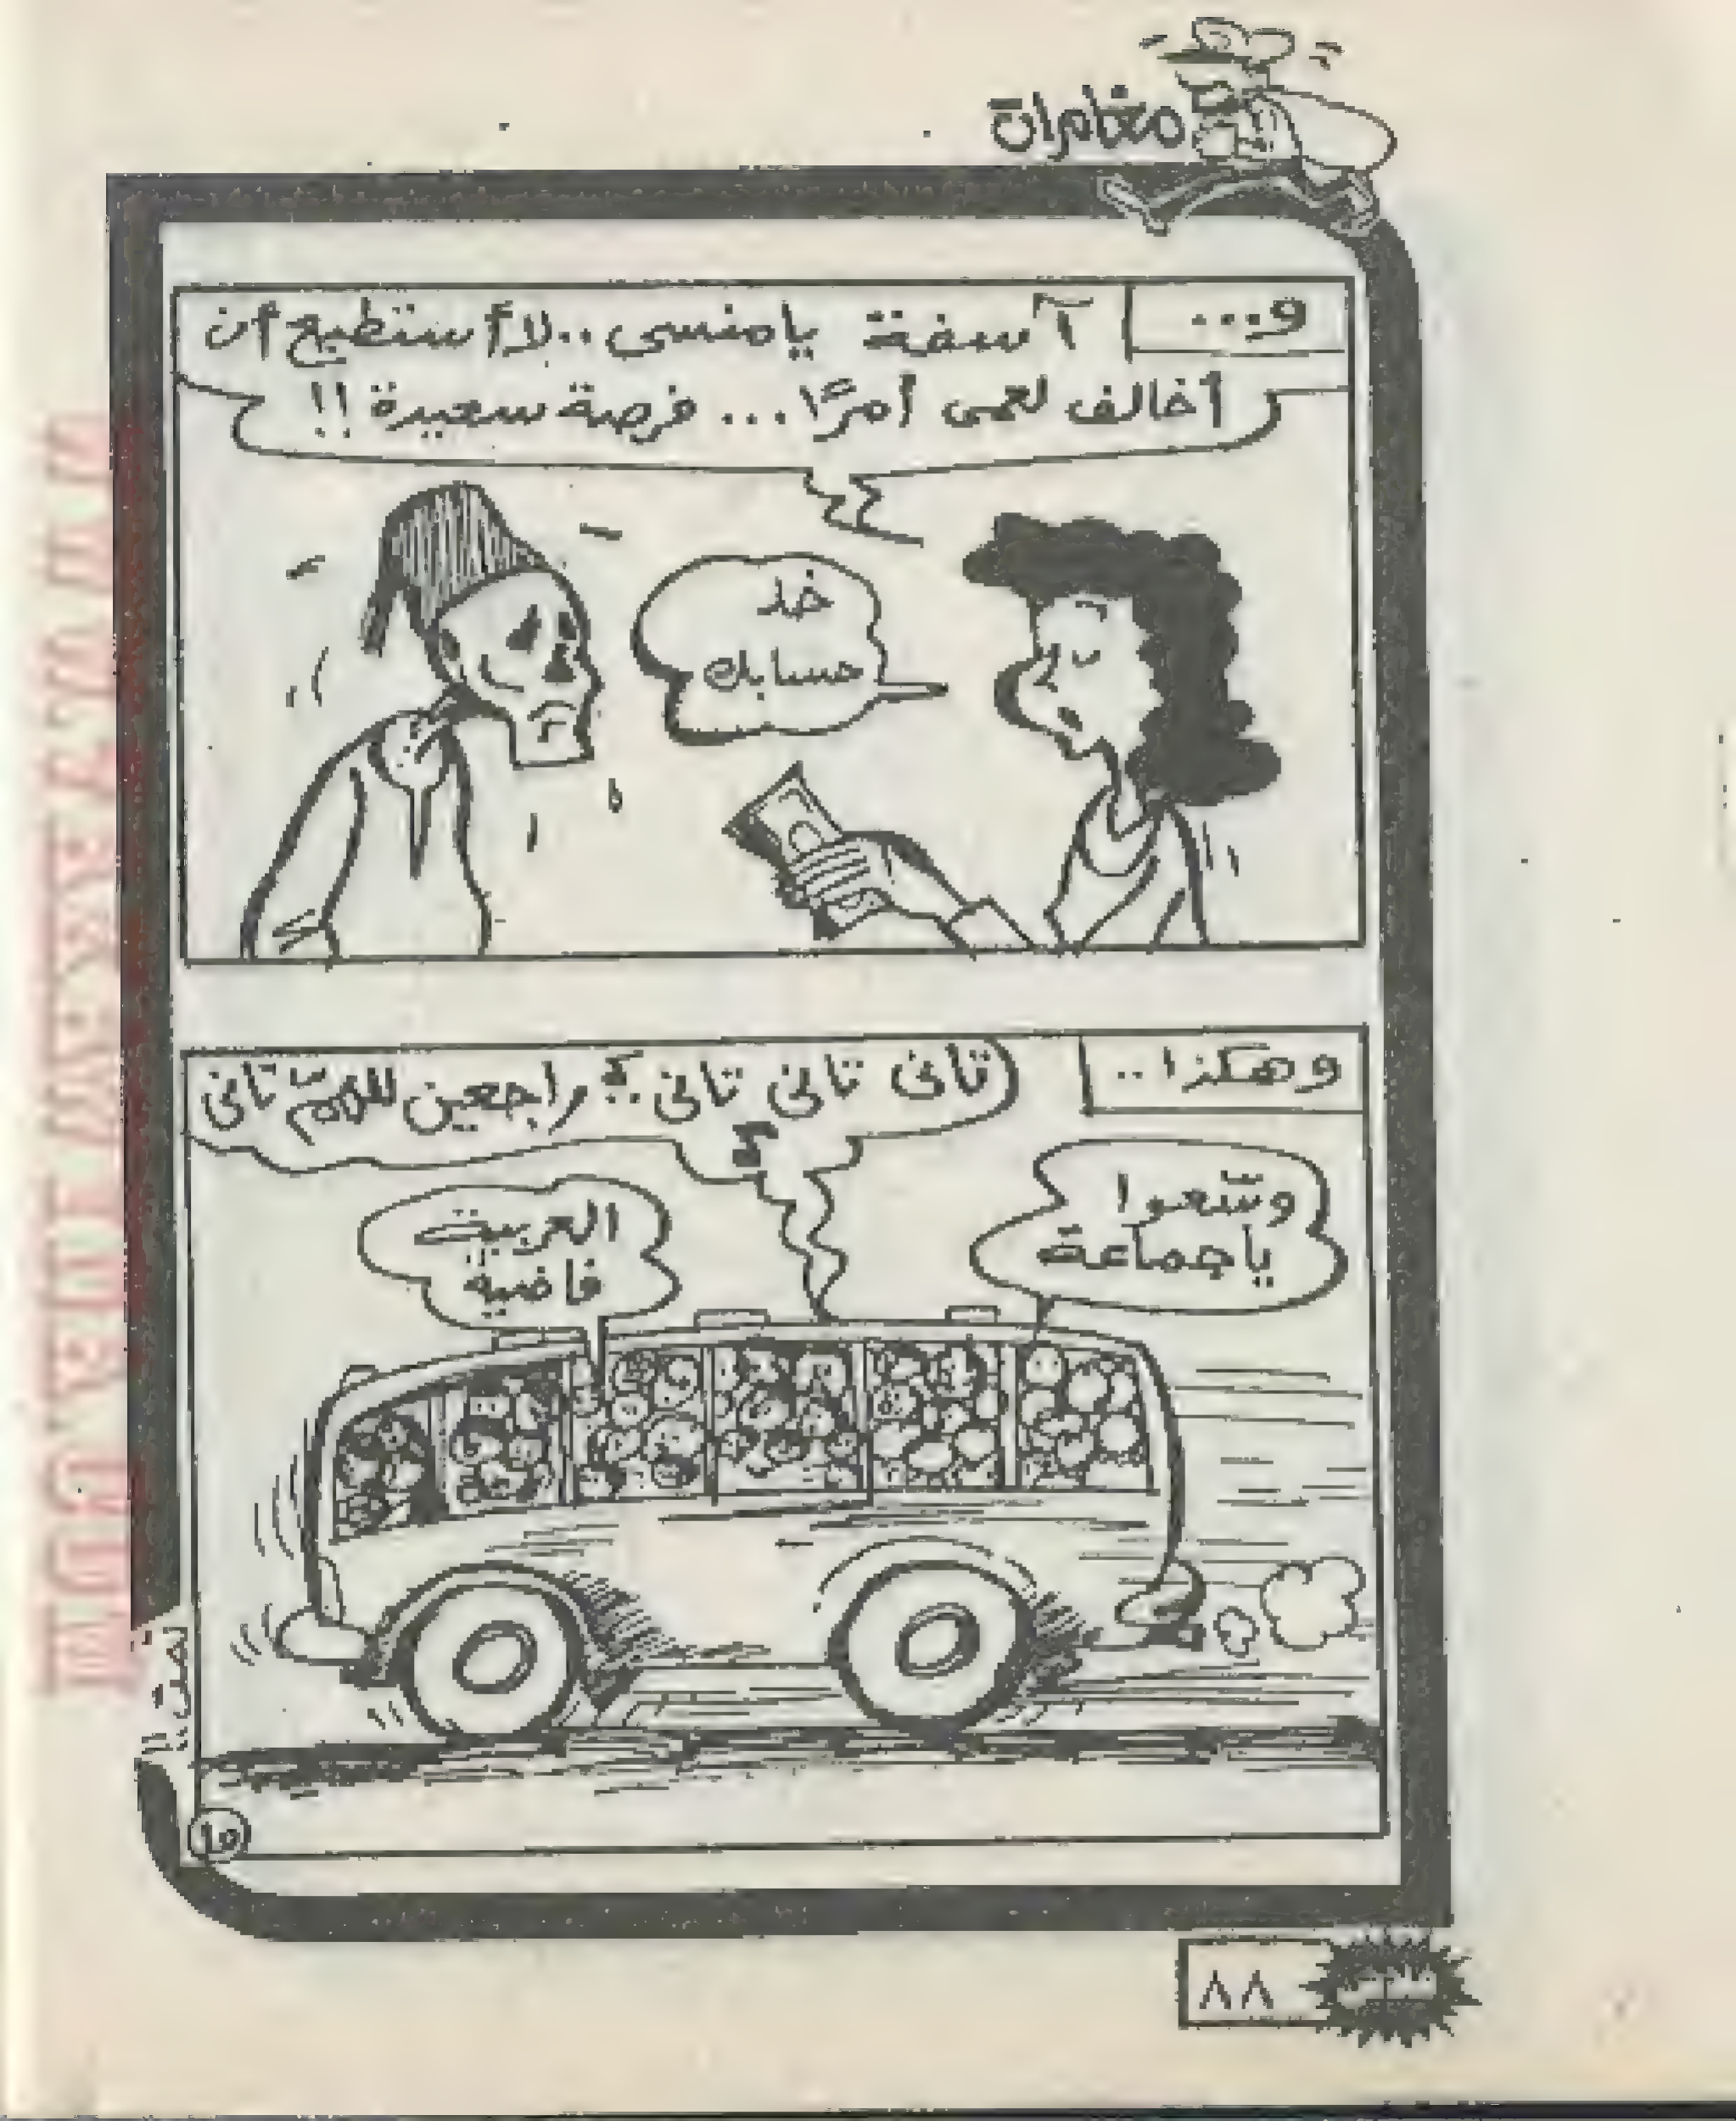 مغامرات
و...
آسفة يا منسى.. لا أستطيع أن
أخالف لعمى أمرًا... فرصة سعيدة!!
خد
حسابك
وهكذا..
تانى تانى تانى.. راجعين للهمّ تانى
وسّعوا
ياجماعة
العربية
فاضية
تمت!!
١٥
٨٨